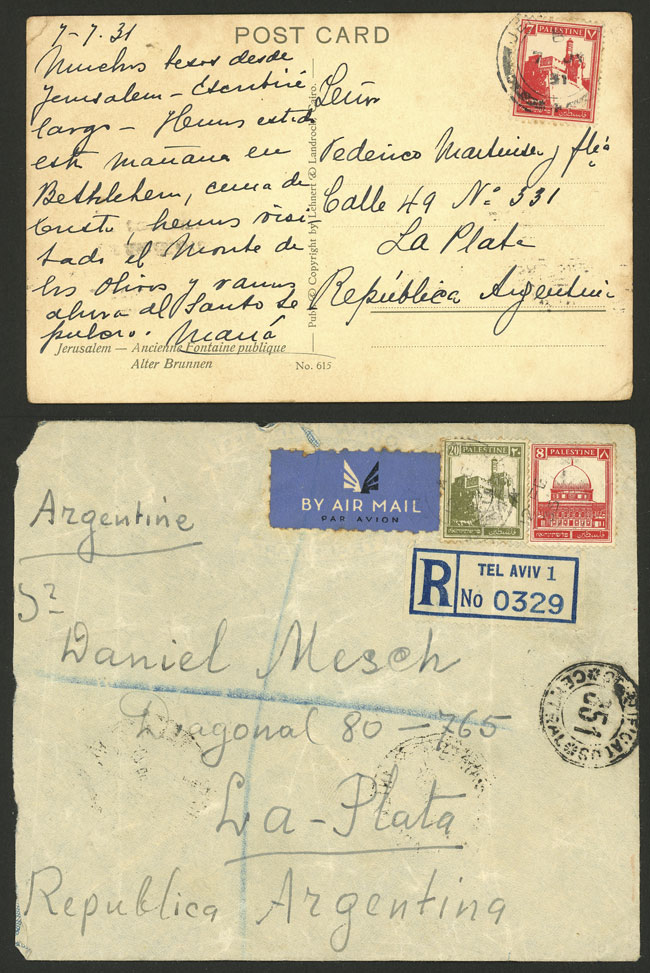 7-7.31
POST CARD
Muchos besos desde
Jerusalem - Escribiré
largo - Hemos estado
esta mañana en
Bethlehem, cuna de
Cristo hemos visi-
tado el Monte de
los Olivos y vamos
ahora al Santo Se
pulcro. María
Jerusalem — Ancienne Fontaine publique
Alter Brunnen
No. 615
Publ. & Copyright by Lehnert & Landrock, Cairo.
7 PALESTINE ٧
Señor
Federico Martinez y flia
Calle 49 Nº 531
La Plata
República Argentina
BY AIR MAIL
PAR AVION
20 PALESTINE ٢٠
8 PALESTINE ٨
R TEL AVIV 1
No 0329
Argentine
Sr
Daniel Mesch
Diagonal 80 - 765
La-Plata
Republica Argentina
351